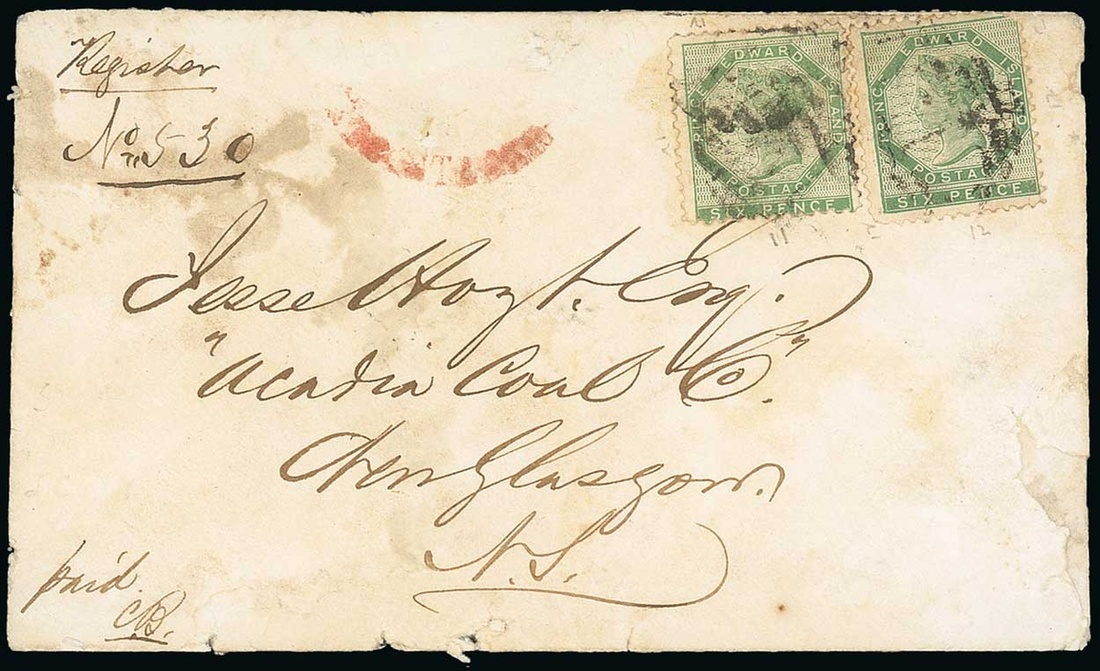 Register
No. 530
PRINCE EDWARD ISLAND
POSTAGE
SIX PENCE
PRINCE EDWARD ISLAND
POSTAGE
SIX PENCE
11
12
Jesse Hoyt. Esq.
"Acadia Coal Co."
New Glasgow.
N.S.
paid.
CB.